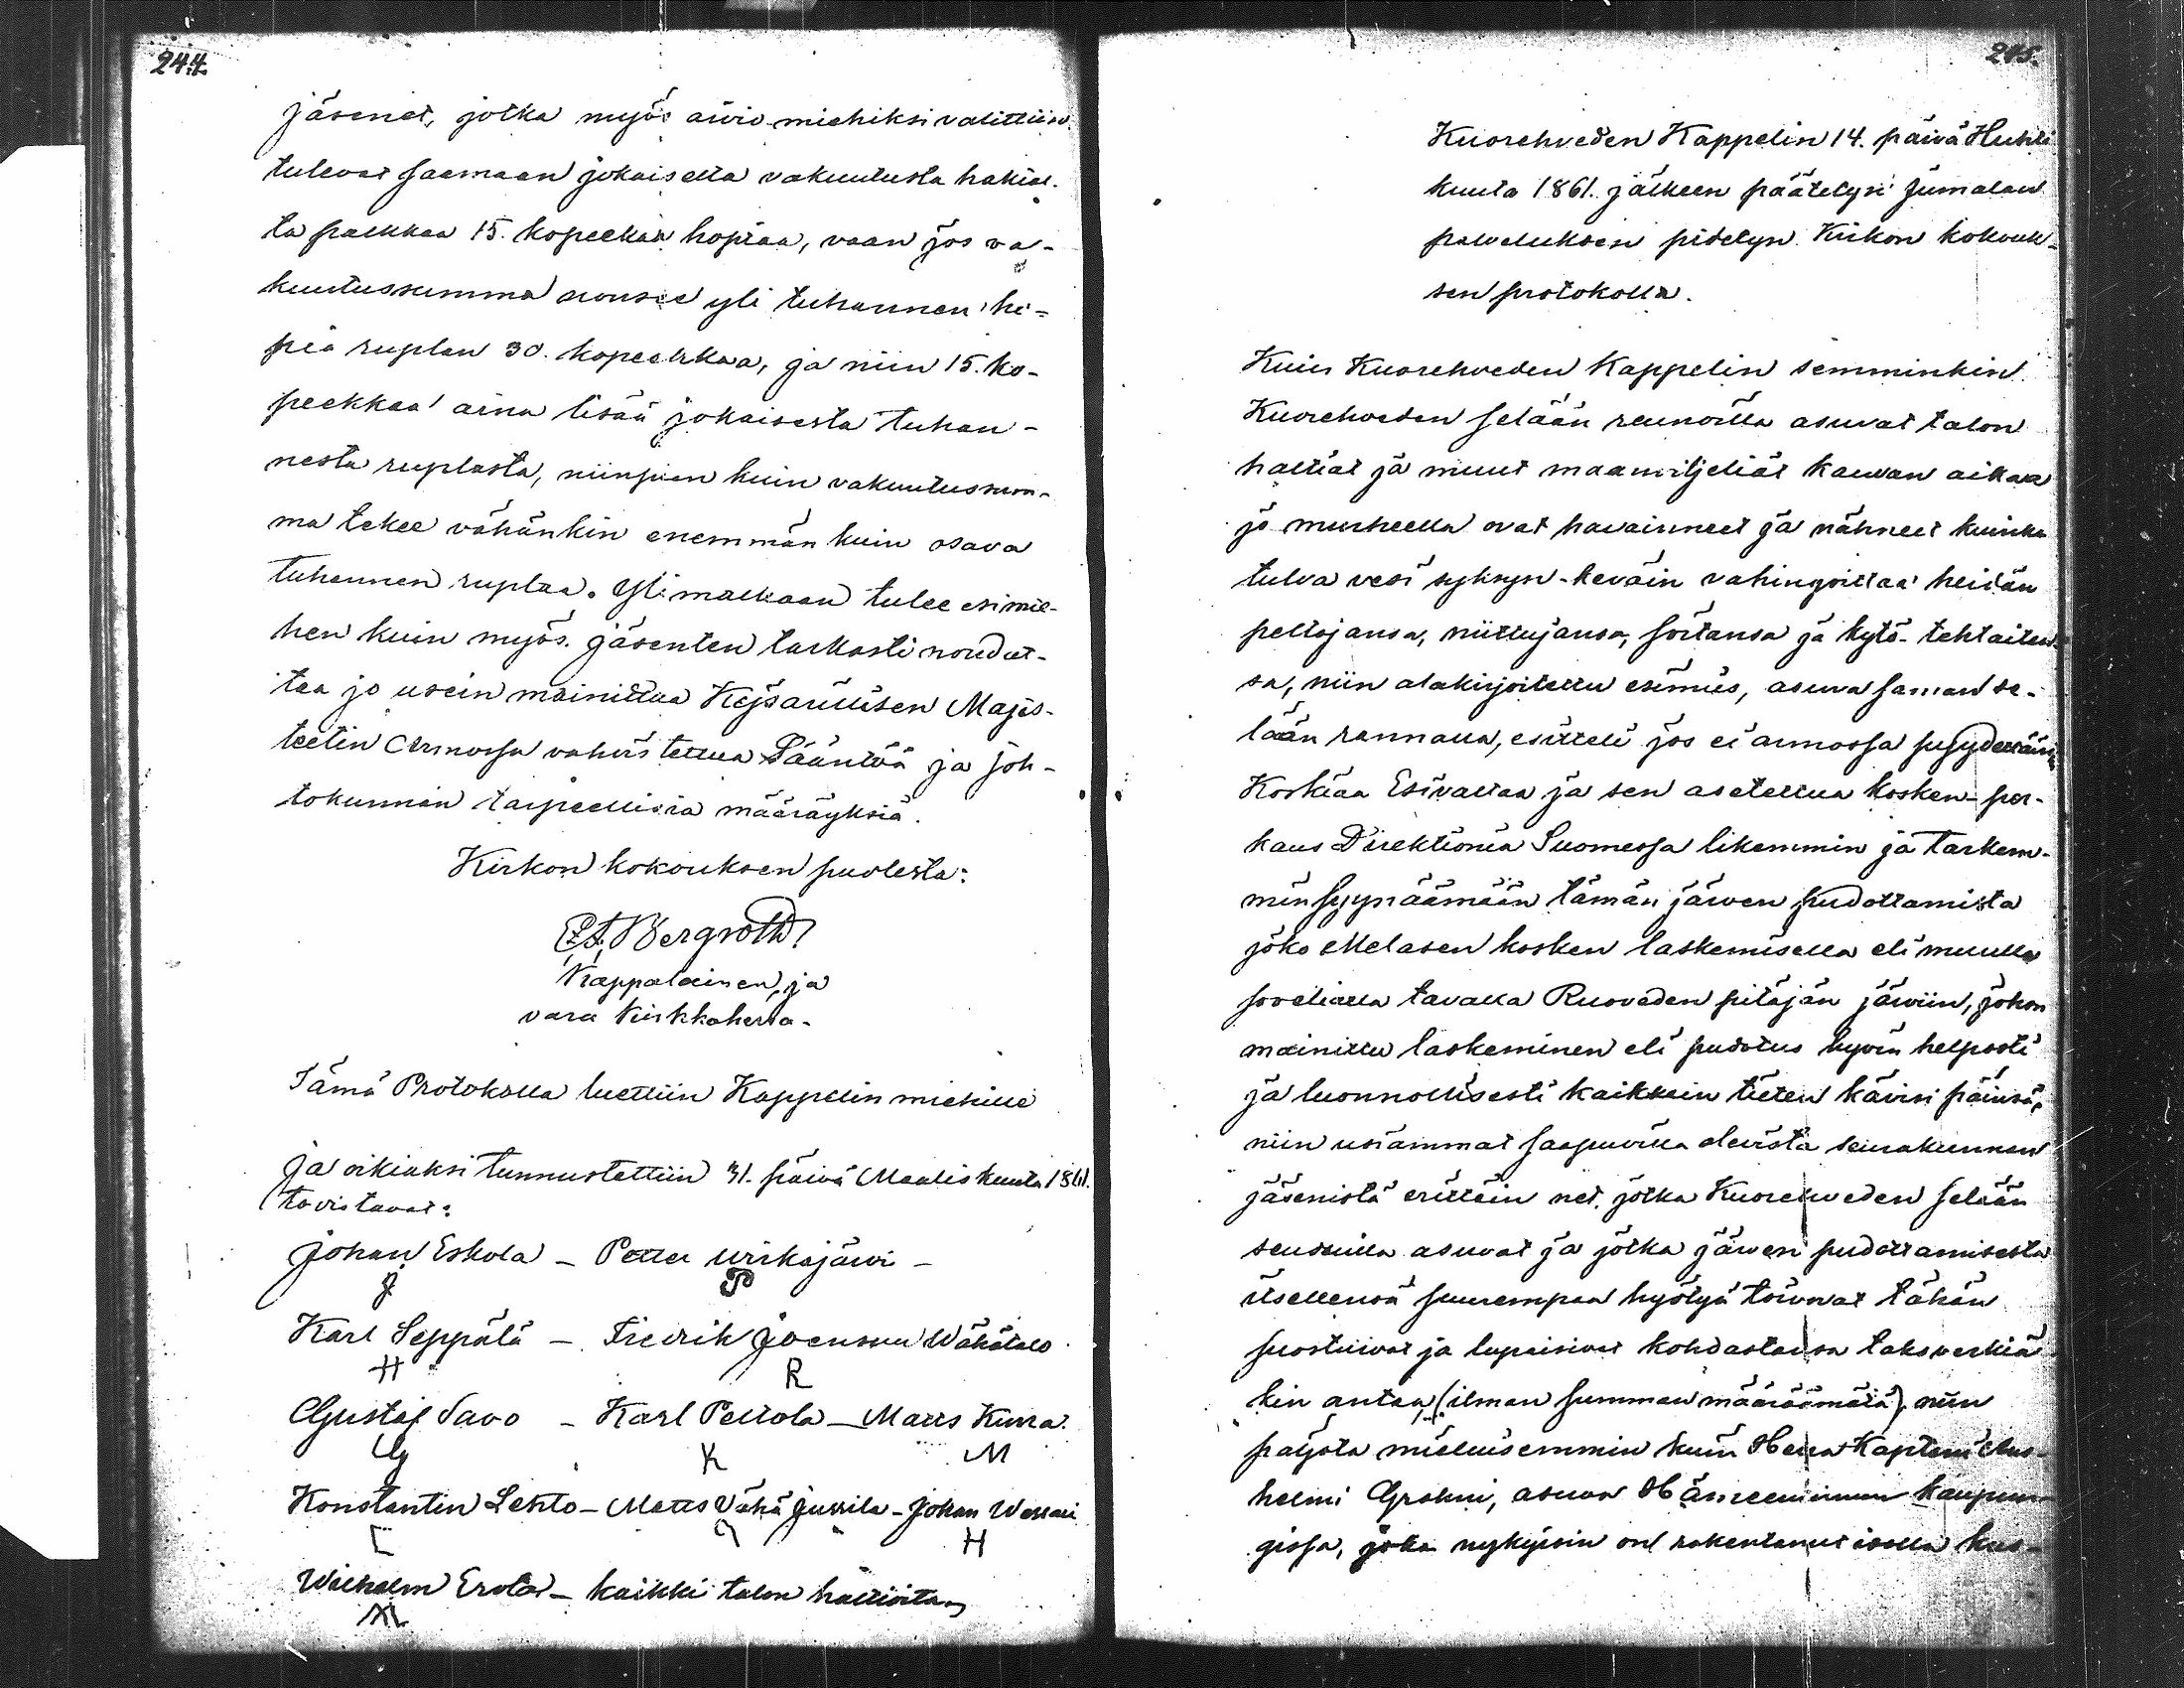 244.
jäsenet, jotka myös arvio miehiksi valittiin,
tulevat saamaan jokaiselta vakuutusta hakial-
ta palkkaa 15. kopeekkaa hopiaa, vaan jos va-
kuutussumma nousee yli tuhannen ho-
pia ruplan 30. kopeekkaa, ja niin 15. ko-
peekkaa aina lisää jokaisesta tuhan-
nesta ruplasta, niinpian kuin vakuutussum-
ma tekee vähänkin enemmän kuin osava
tuhannen ruplaa. Ylimalkaan tulee esimie-
hen kuin myös jäsenten tarkasti noudat-
taa jo usein mainittua Keisarillisen Majes-
teetin Armossa vahvistettua Sääntöä ja joh-
tokunnan tarpeellisia määräyksiä.
Kirkon kokouksen puolesta:
Bergroth
Kappalainen, ja
vara Kirkkoherra.
Tämä Protokolla luettiin Kappelin miehille
ja oikiaksi tunnustettiin 31. päivä Maaliskuuta 1861.
tovistavat:
Johan Eskola - Petter Wirkajärvi -
J P
Karl Seppälä - Fredrik Joensuu Wähätalo
H R
Gustaf Savo - Karl Peltola - Matts Kurra.
G K M
Konstantin Lehto - Matts Vähä Jussila - Johan Wessari
L H
Wilhelm Erola - kaikki talon haltioita
245.
Kuorehveden Kappelin 14. päivä Huhti
kuuta 1861. jälkeen päätetyn Jumalan
palveluksen pidetyn Kirkon kokouk-
sen protokolla.
Kuin Kuorehveden Kappelin semminkin
Kuorehveden selään reunoilla asuvat talon
haltiat ja muut maanviljeliät kauvan aikaa
jo murheella ovat havainneet ja nähneet kuinka
tulva vesi syksyn-keväin vahingoittaa heidän
peltojansa, niittujansa, soitansa ja kytö-tehtaiten-
sa, niin alakirjoitettu esimies, asuva saman se-
lään rannalla, esitteli jos ei armossa pyydettäisi
Korkiaa Esivaltaa ja sen asetettua kosken-per-
kaus Direktionia Suomessa likemmin ja tarkem-
min syynäämään tämän järven pudottamista
joko Melasen kosken laskemisella eli muulla
soveliaalla tavalla Ruoveden pitäjän järviin, johon
mainittu laskeminen eli pudotus hyvin helposti
ja luonnollisesti kaikkein tieten kävisi päinsä,
niin usiammat saapuvilla olevista seurakunnan
jäsenistä erittäin net, jotka Kuorehveden selään
seuduilla asuvat ja jotka järven pudottamisesta
itsellensä suurempaa hyötyä toivovat tähän
suostuivat ja lupaisivat kohdastansa taksverkiä-
kin antaa (ilman summan määräämätä), niin
paljota mieluisemmin kuin Herra Kapteini Aus-
helmi Grahni, asuva Hämeenlinnan kaupun-
gissa, joka nykyisin on rakentanut isolla kus-